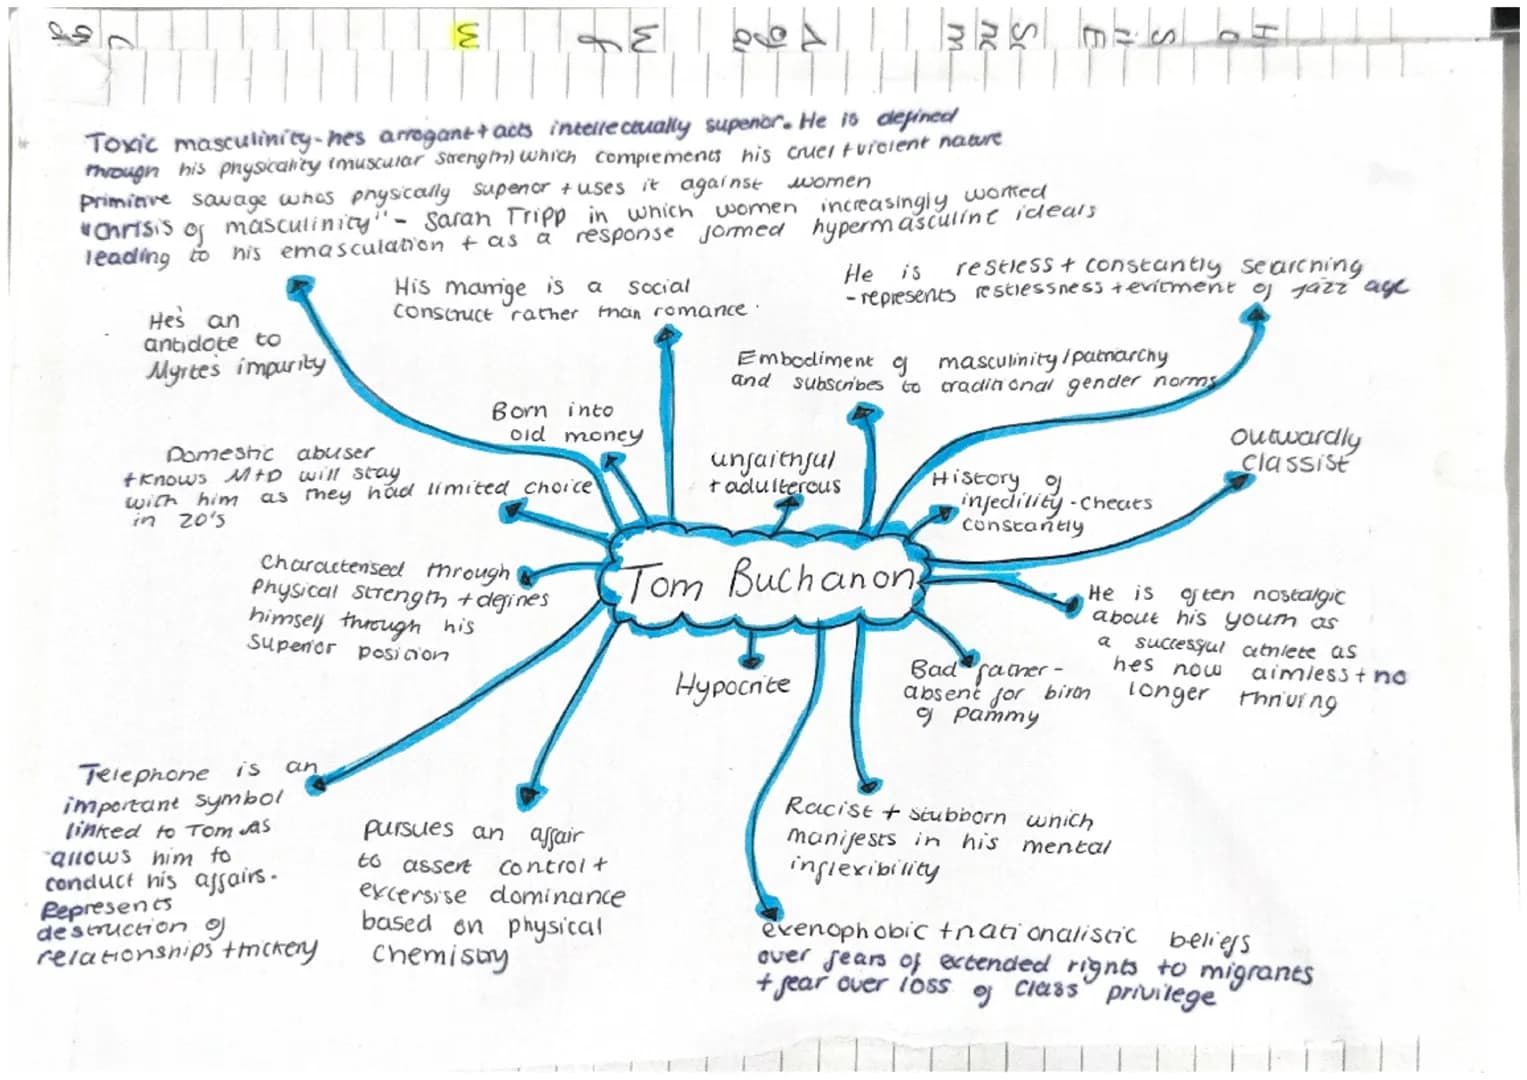 Toxic masculinity - hes arrogant + acts intellectually superior. He is defined
through his physicality (muscular strength) which complements his cruel + violent nature
primitive savage whos physically superior + uses it against women
"Chrisis of masculinity" - Sarah Tripp in which women increasingly worked
leading to his emasculation + as a response formed hypermasculine ideals
His marrige is a social
construct rather than romance.
He is restless + constantly searching
- represents restlessness + exitment of jazz age
He's an
antidote to
Myrtle's impurity
Embodiment of masculinity/patriarchy
and subscribes to traditional gender norms
Born into
old money
Domestic abuser
+ knows M+D will stay
with him as they had limited choice
in 20's
unfaithful
+ adulterous
History of
infedility - cheats
constantly
outwardly
classist
Characterised through
Physical strength + defines
himself through his
superior position
Tom Buchanon
He is often nostalgic
about his youth as
a successful athlete as
hes now aimless + no
longer thriving
Hypocrite
Bad father -
absent for birth
of Pammy
Telephone is an
important symbol
linked to Tom as
allows him to
conduct his affairs.
Represents
destruction of
relationships + trickery
pursues an affair
to assert control +
excersise dominance
based on physical
chemistry
Racist + stubborn which
manifests in his mental
inflexibility
exenophobic + nationalistic beliefs
over fears of extended rights to migrants
+ fear over loss of class privilege